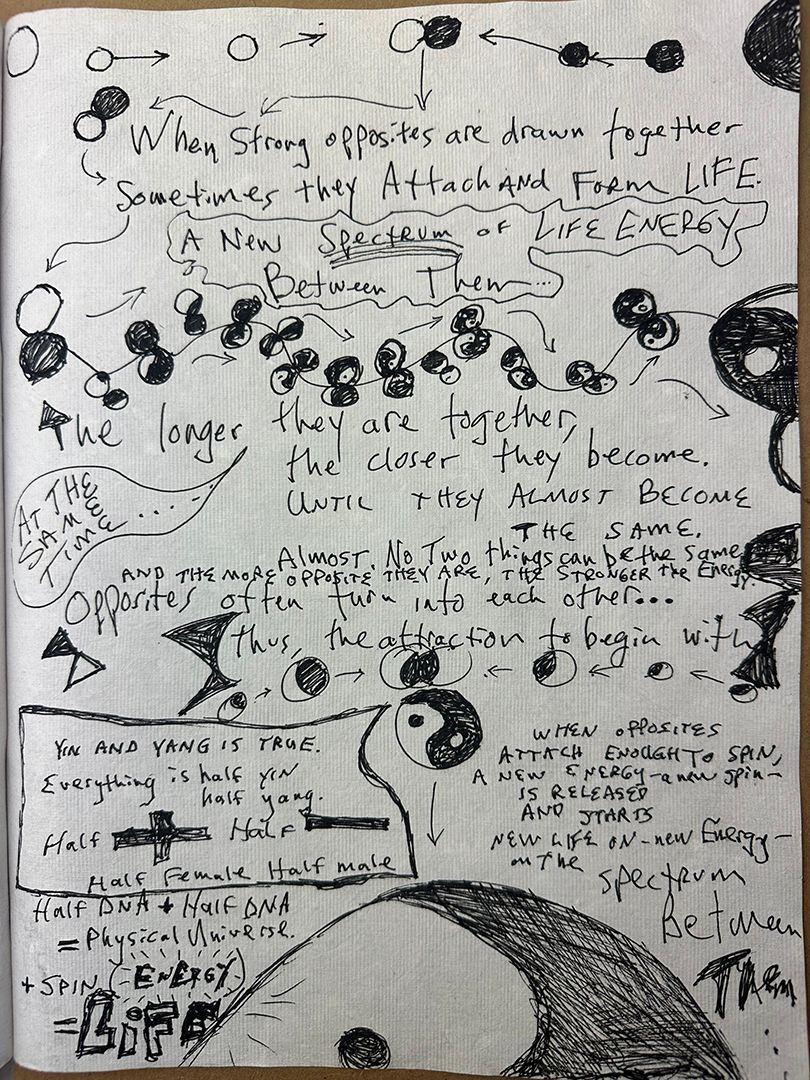 When Strong opposites are drawn together
Sometimes they Attach AND Form LIFE.
A New Spectrum of LIFE ENERGY
Between Them...
The longer they are together,
the closer they become.
UNTIL THEY ALMOST BECOME
THE SAME.
AT THE
SAME
TIME....
Almost. No Two things can be the same
AND THE MORE OPPOSITE THEY ARE, THE STRONGER THE Energy.
Opposites often turn into each other...
thus, the attraction to begin with
YIN AND YANG IS TRUE.
Everything is half yin
half yang.
Half + Half -
Half Female Half male
WHEN OPPOSITES
ATTACH ENOUGH TO SPIN,
A NEW ENERGY - a new spin -
IS RELEASED
AND STARTS
NEW LIFE ON - new Energy -
on the
Spectrum
Between
Them
Half DNA + Half DNA
= Physical Universe.
+ SPIN (-ENERGY)
= LiFE